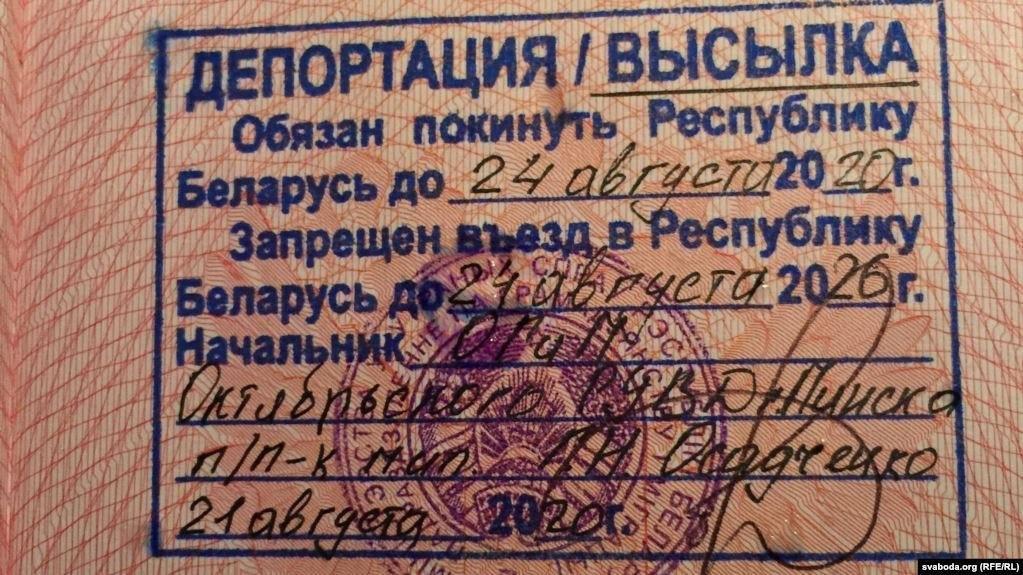 ДЕПОРТАЦИЯ / ВЫСЫЛКА
Обязан покинуть Республику
Беларусь до 24 августа 2020 г.
Запрещен въезд в Республику
Беларусь до 24 августа 2026 г.
Начальник ОГиМ
Октябрьского РУВД г. Минска
п/п-к мил.
21 августа 2020 г.
svaboda.org (RFE/RL)